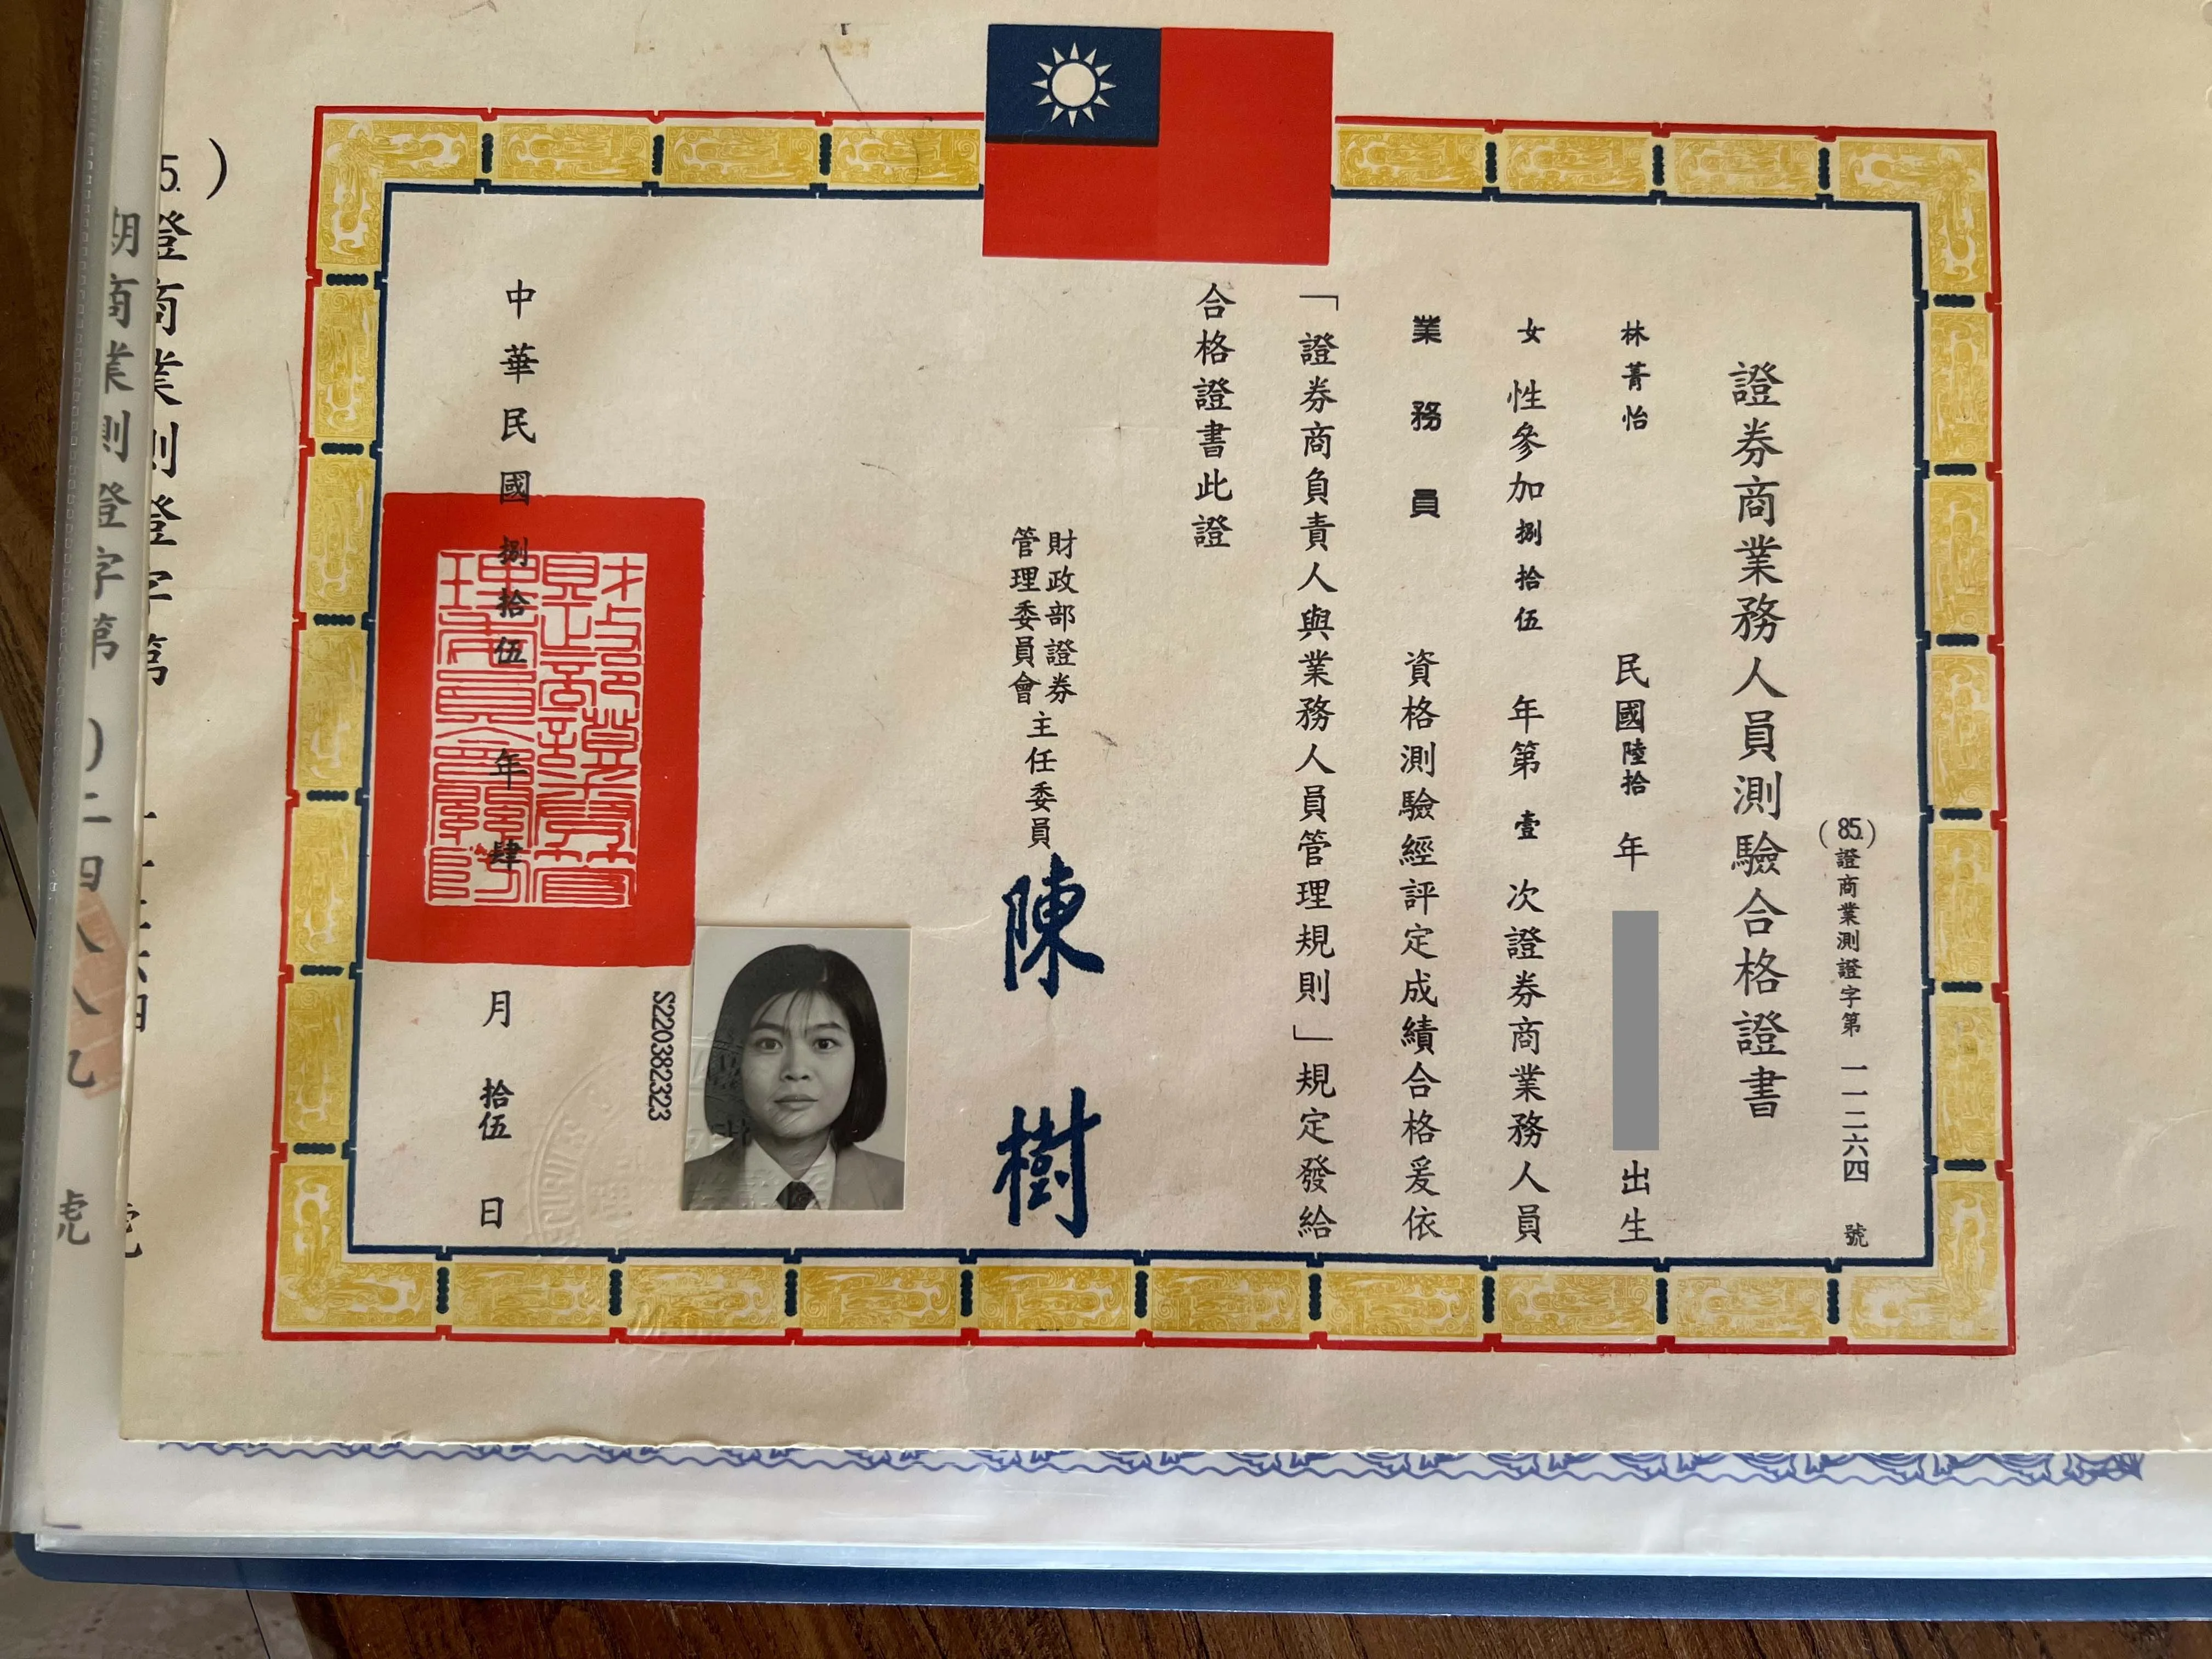 (85.)證商業測證字第一一二六四號
證券商業務人員測驗合格證書
林菁怡 民國陸拾年 出生
女性參加捌拾伍年第壹次證券商業務人員
業務員 資格測驗經評定成績合格爰依
「證券商負責人與業務人員管理規則」規定發給
合格證書此證
財政部證券
管理委員會
主任委員 陳樹
S220382323
中華民國捌拾伍年肆月拾伍日
財政部證券管
理委員會關防
5.)證商業測證字第
號
期商業測證字第
)二四八八九
號